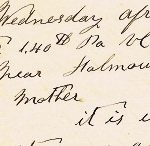 Wednesday apr
140th Pa V
near Falmou
Mother
it is